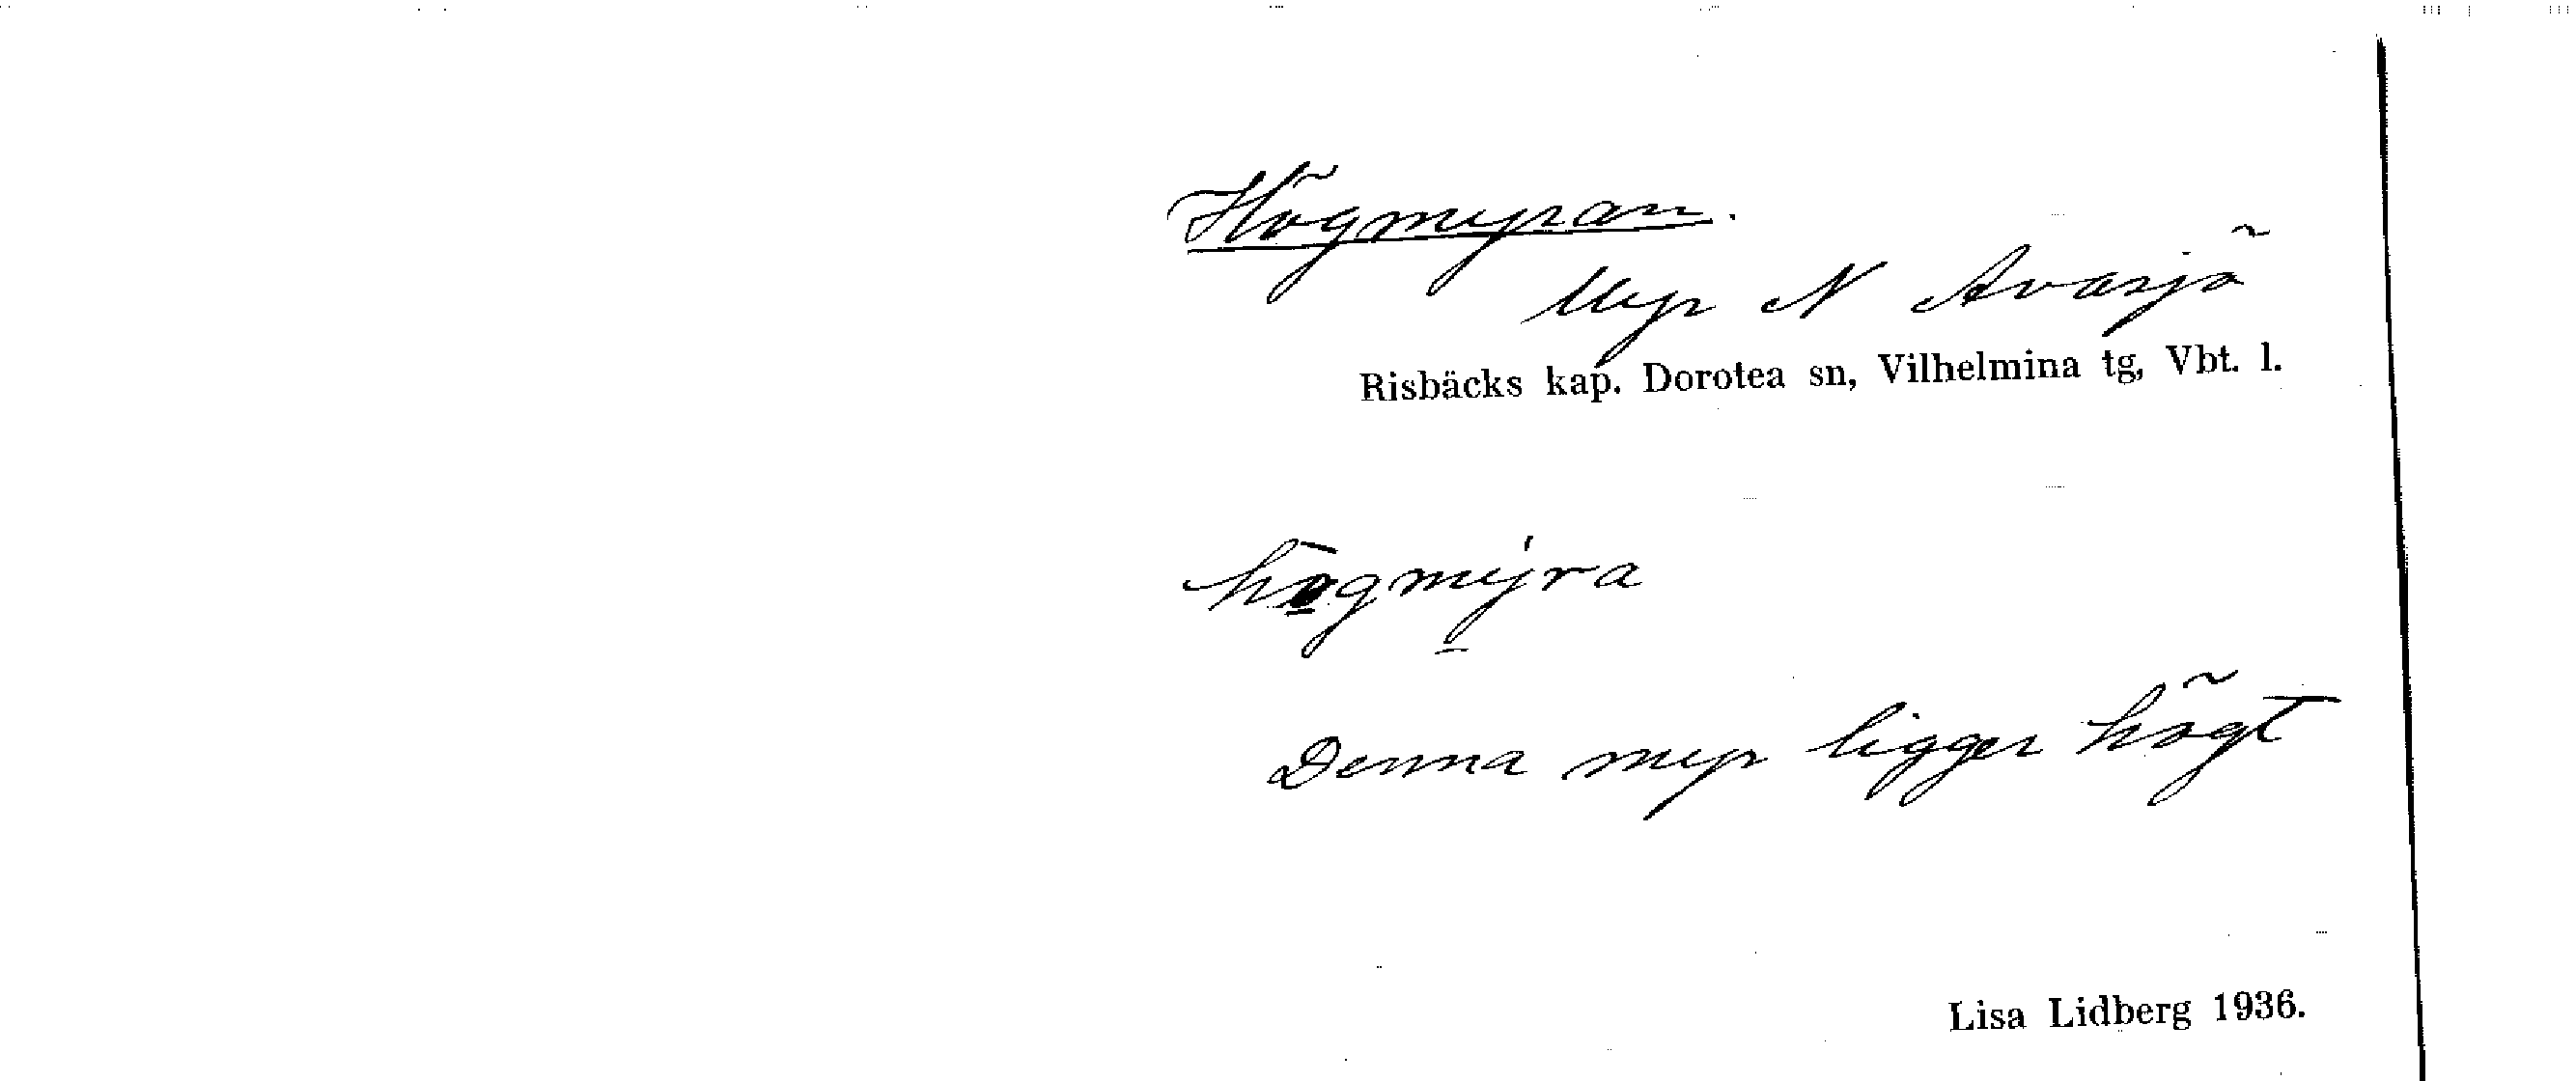 Högmyran.
Myr N Avasjö
Risbäcks kap. Dorotea sn, Vilhelmina tg, Vbt. l.
högmýra
Denna myr ligger högt
Lisa Lidberg 1936.